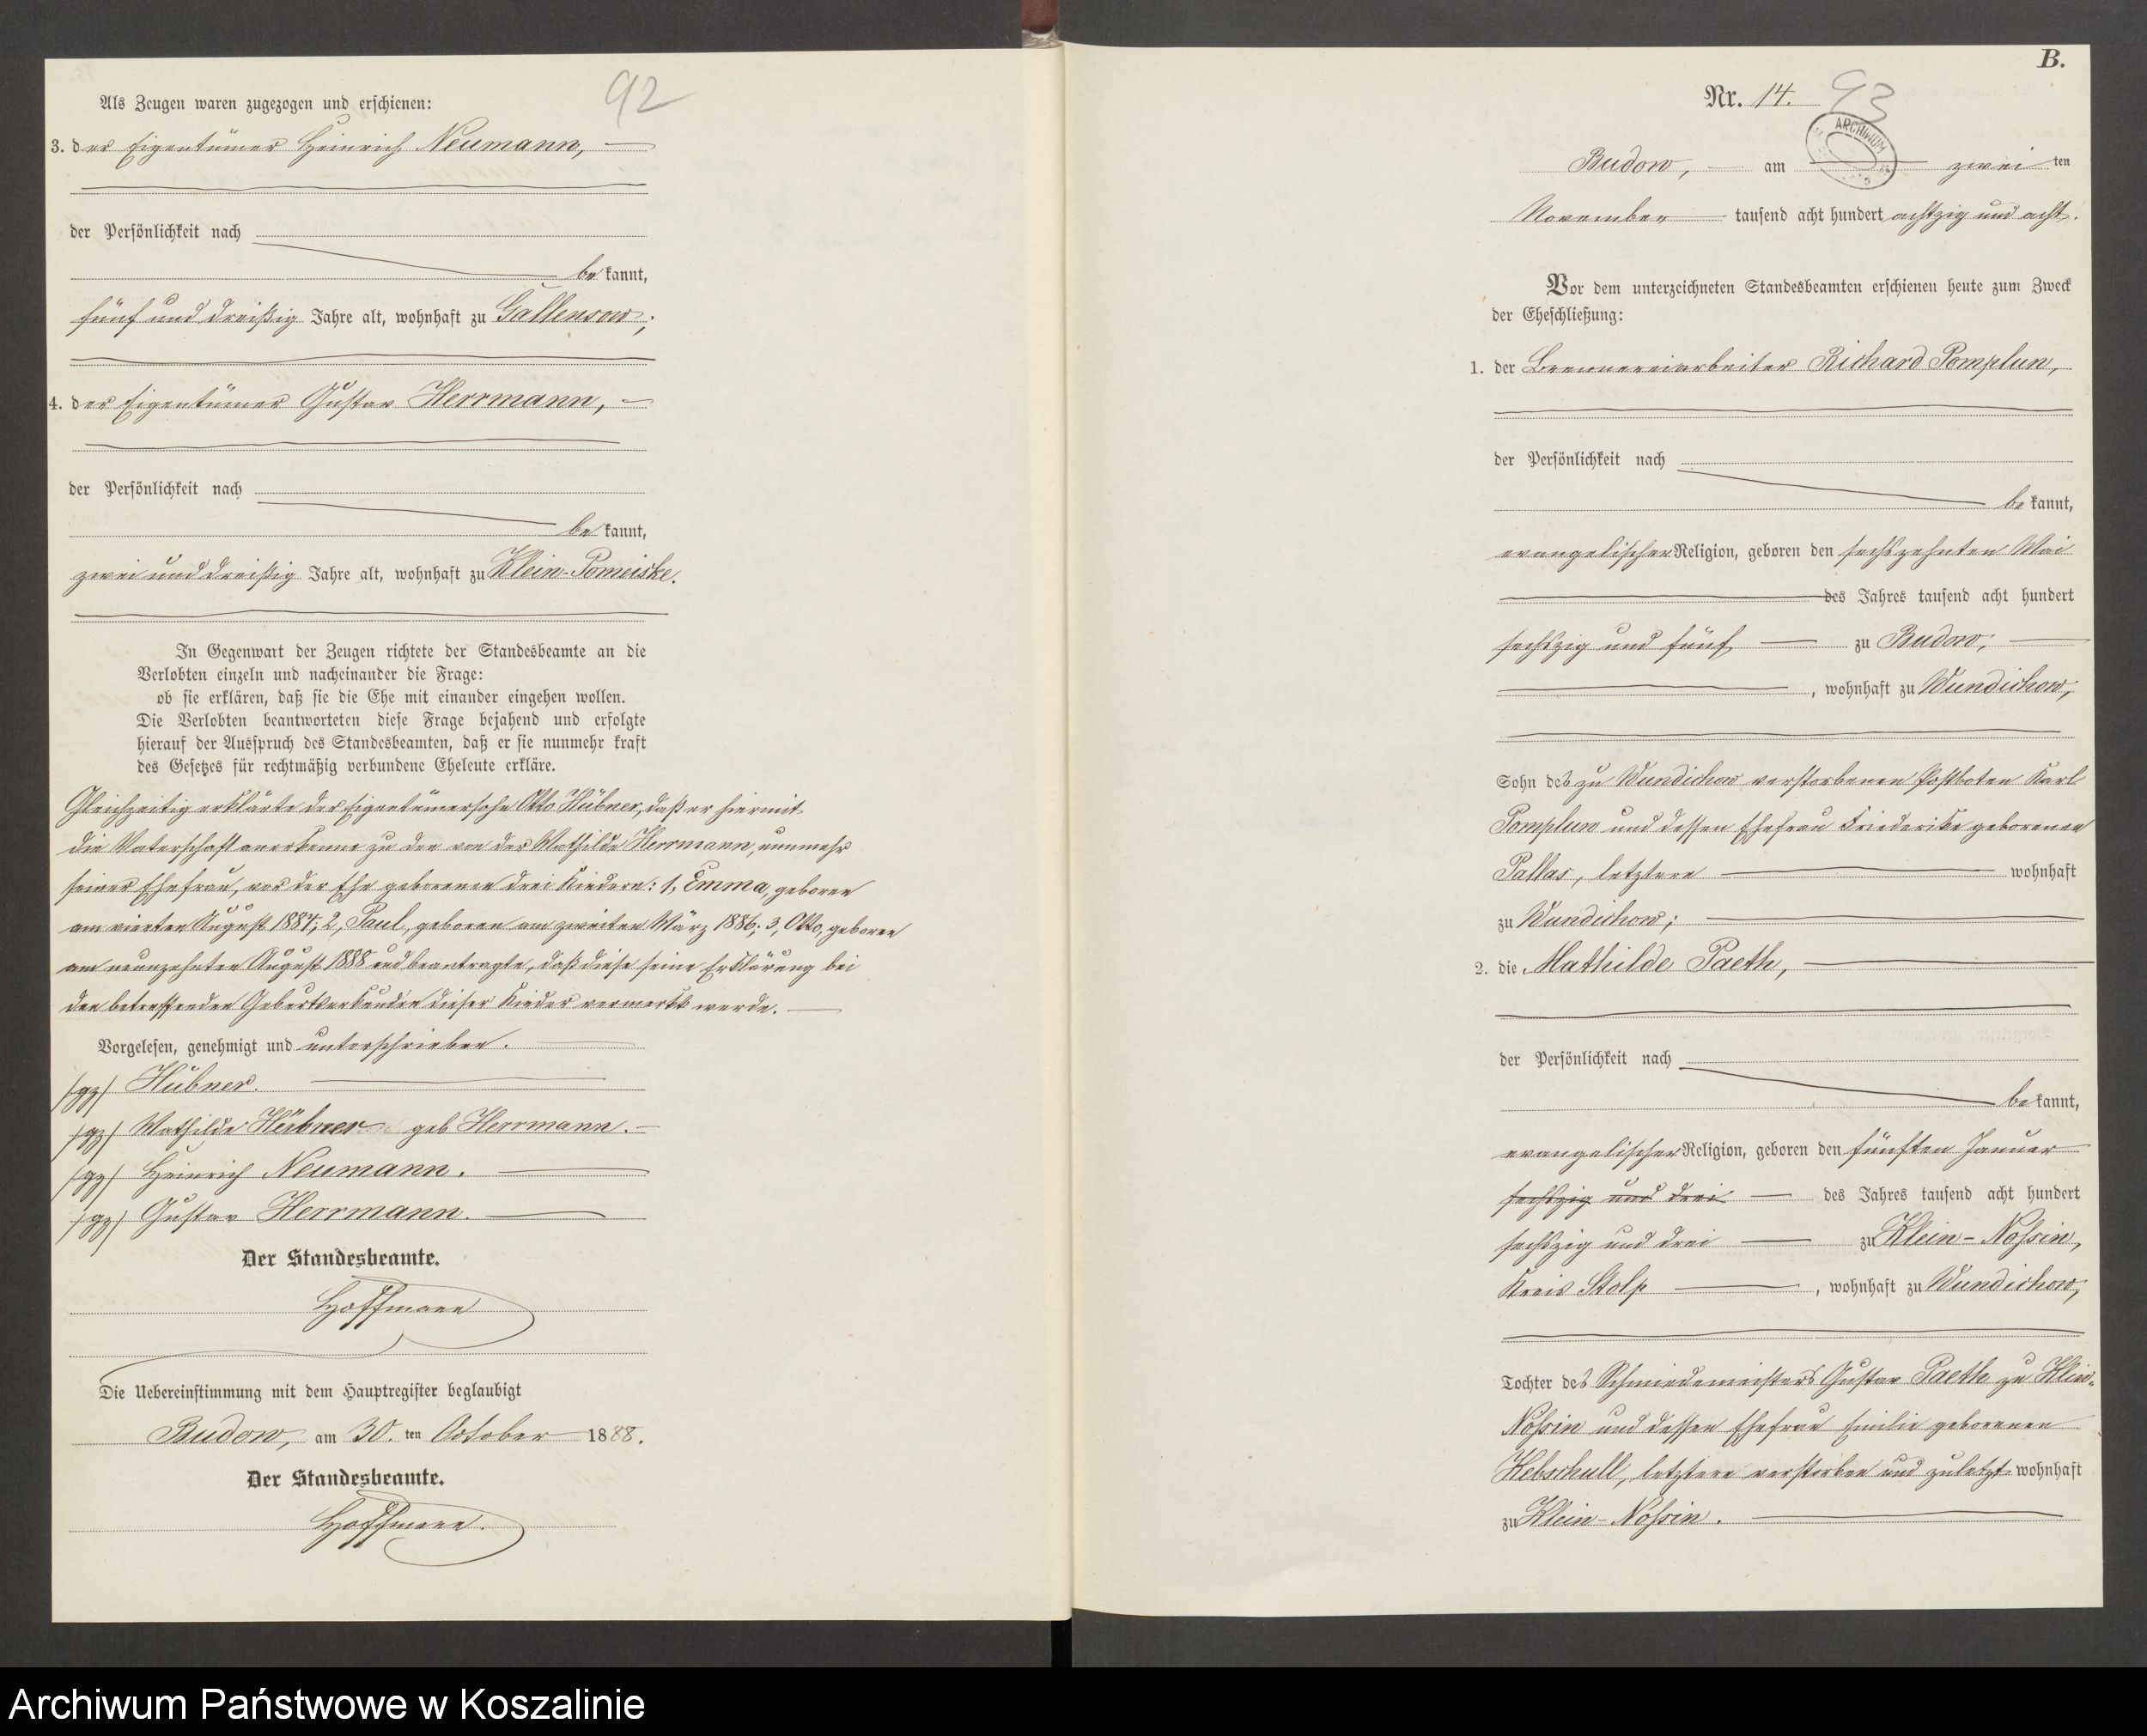 92
Als Zeugen waren zugezogen und erschienen:
3. der Eigentümer Heinrich Neumann,
der Persönlichkeit nach
be kannt,
fünf und dreißig Jahre alt, wohnhaft zu Gallensow;
4. der Eigentümer Gustav Herrmann,
der Persönlichkeit nach
be kannt,
zwei und dreißig Jahre alt, wohnhaft zu Klein-Pomeiske.
In Gegenwart der Zeugen richtete der Standesbeamte an die
Verlobten einzeln und nacheinander die Frage:
ob sie erklären, daß sie die Ehe mit einander eingehen wollen.
Die Verlobten beantworteten diese Frage bejahend und erfolgte
hierauf der Ausspruch des Standesbeamten, daß er sie nunmehr kraft
des Gesetzes für rechtmäßig verbundene Eheleute erkläre.
Gleichzeitig erklärte der Eigentümersohn Otto Hübner, daß er hiermit
die Vaterschaft anerkenne zu den von der Mathilde Herrmann, nunmehr
seiner Ehefrau, vor der Ehe geborenen drei Kindern: 1, Emma, geboren
am vierten August 1884; 2, Paul, geboren am zweiten März 1886; 3, Otto, geboren
am neunzehnten August 1888 und beantragte, daß diese seine Erklärung bei
den betreffenden Geburtsurkunden dieser Kinder vermerkt werde.
Vorgelesen, genehmigt und unterschrieben.
/gz/ Hübner.
/gz/ Mathilde Hübner geb Herrmann.
/gz/ Heinrich Neumann.
/gz/ Gustav Herrmann.
Der Standesbeamte.
Hoffmann
Die Uebereinstimmung mit dem Hauptregister beglaubigt
Budow, am 30. ten October 1888.
Der Standesbeamte.
Hoffmann.
B.
Nr. 14. 93
ARCHIWUM
Budow, am zwei ten
November tausend acht hundert achtzig und acht.
Vor dem unterzeichneten Standesbeamten erschienen heute zum Zweck
der Eheschließung:
1. der Brennereiarbeiter Richard Pomplun,
der Persönlichkeit nach
be kannt,
evangelischer Religion, geboren den sechszehnten Mai
des Jahres tausend acht hundert
sechszig und fünf zu Budow,
, wohnhaft zu Wundichow,
Sohn des zu Wundichow verstorbenen Postboten Karl
Pomplun und dessen Ehefrau Friederike geborenen
Pallas, letztere wohnhaft
zu Wundichow;
2. die Mathilde Paeth,
der Persönlichkeit nach
be kannt,
evangelischer Religion, geboren den fünften Januar
sechszig und drei des Jahres tausend acht hundert
sechszig und drei zu Klein-Nossin,
Kreis Stolp , wohnhaft zu Wundichow,
Tochter des Schmiedemeisters Gustav Paeth zu Klein-
Nossin und dessen Ehefrau Emilie geborenen
Hebschull, letztere verstorben und zuletzt wohnhaft
zu Klein-Nossin.
Archiwum Państwowe w Koszalinie